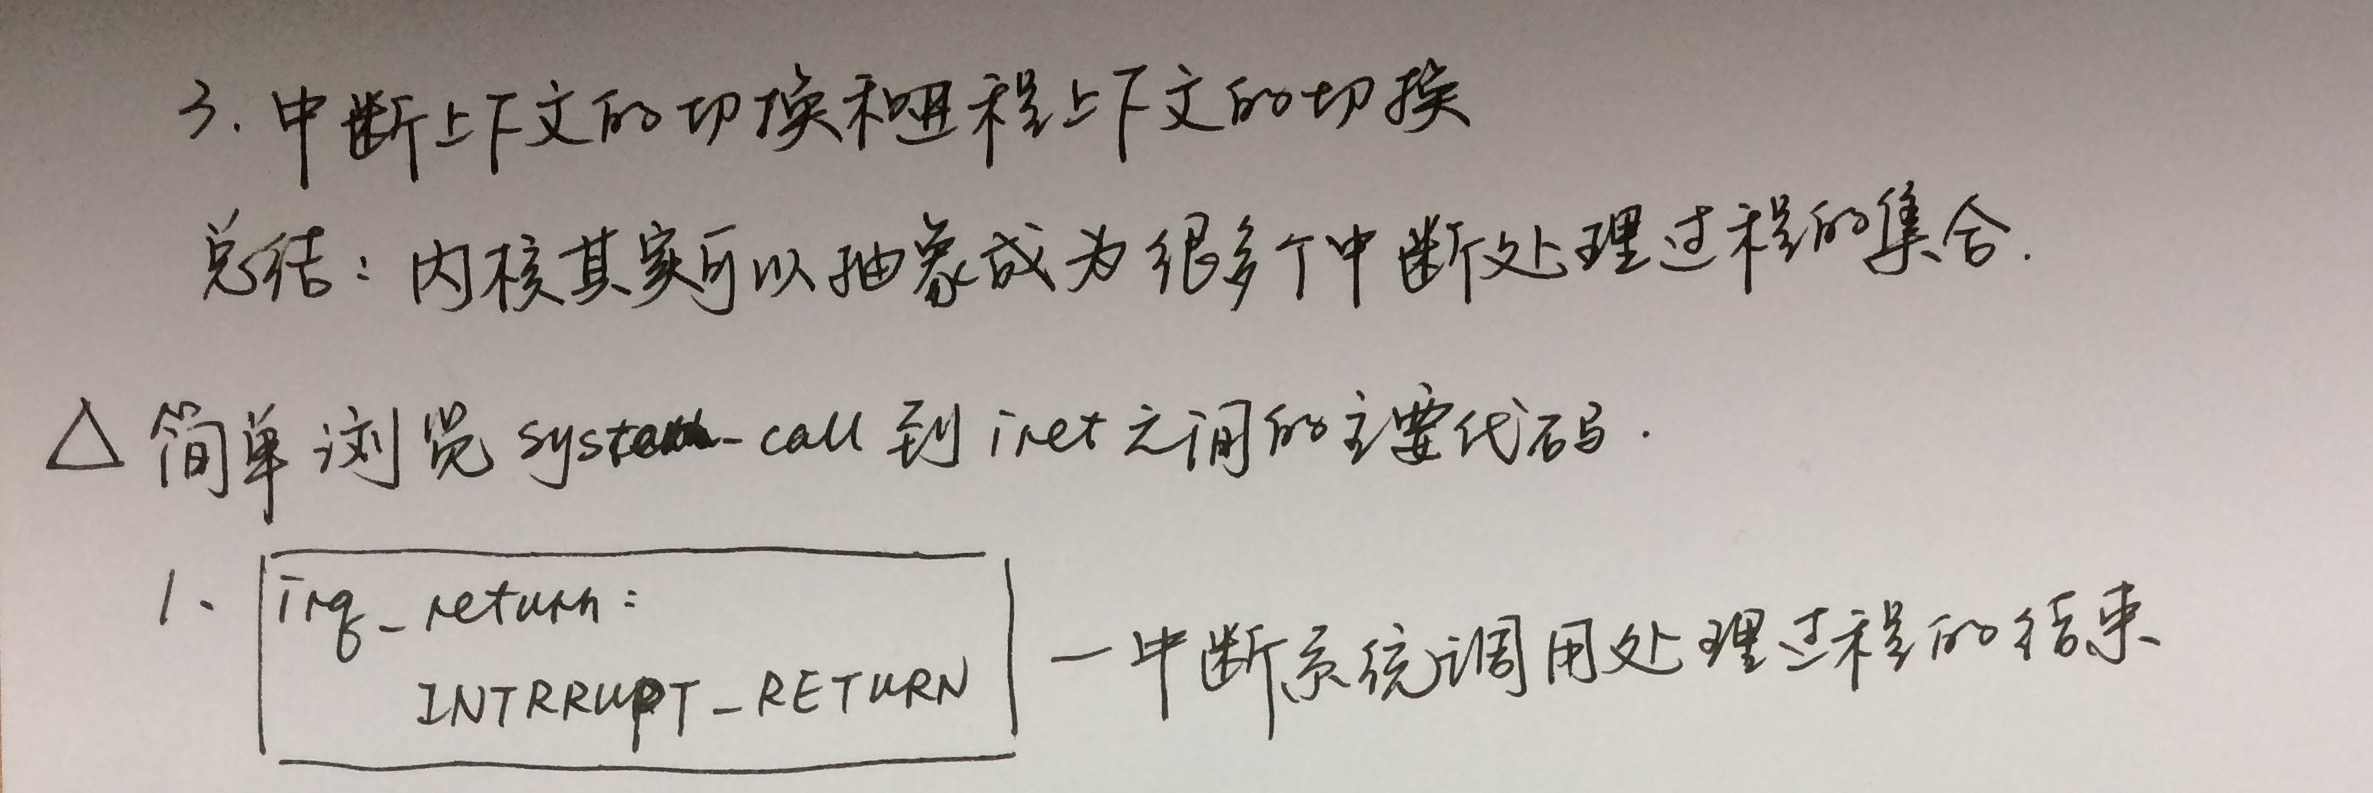 3. 中断上下文的切换和进程上下文的切换
总结：内核其实可以抽象成为很多个中断处理过程的集合.
△ 简单浏览 system_call 到 iret 之间的主要代码.
1、 irq_return: 
INTRRUPT_RETURN — 中断系统调用处理过程的结束